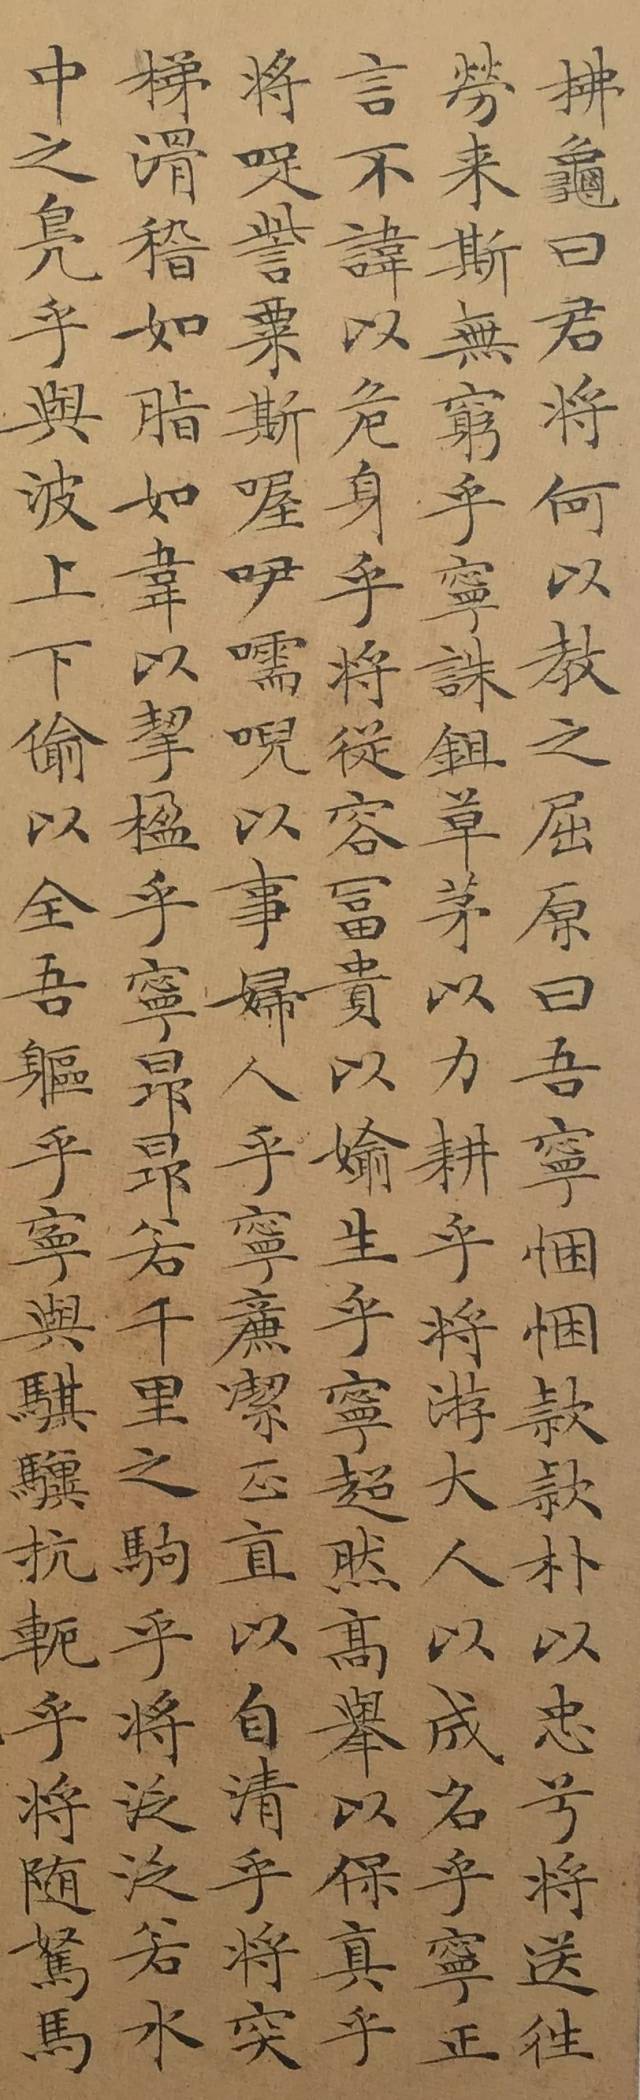 拂龜曰君将何以教之屈原曰吾寧悃悃款款朴以忠兮将送往
勞来斯無窮乎寧誅鉏草茅以力耕乎将游大人以成名乎寧正
言不諱以危身乎将従容冨貴以媮生乎寧超然高舉以保真乎
将哫訾粟斯喔咿嚅唲以事婦人乎寧廉潔正直以自清乎将突
梯滑稽如脂如韋以挈楹乎寧昂昂若千里之駒乎将泛泛若水
中之鳬乎與波上下偷以全吾軀乎寧與騏驥抗軛乎将随駑馬